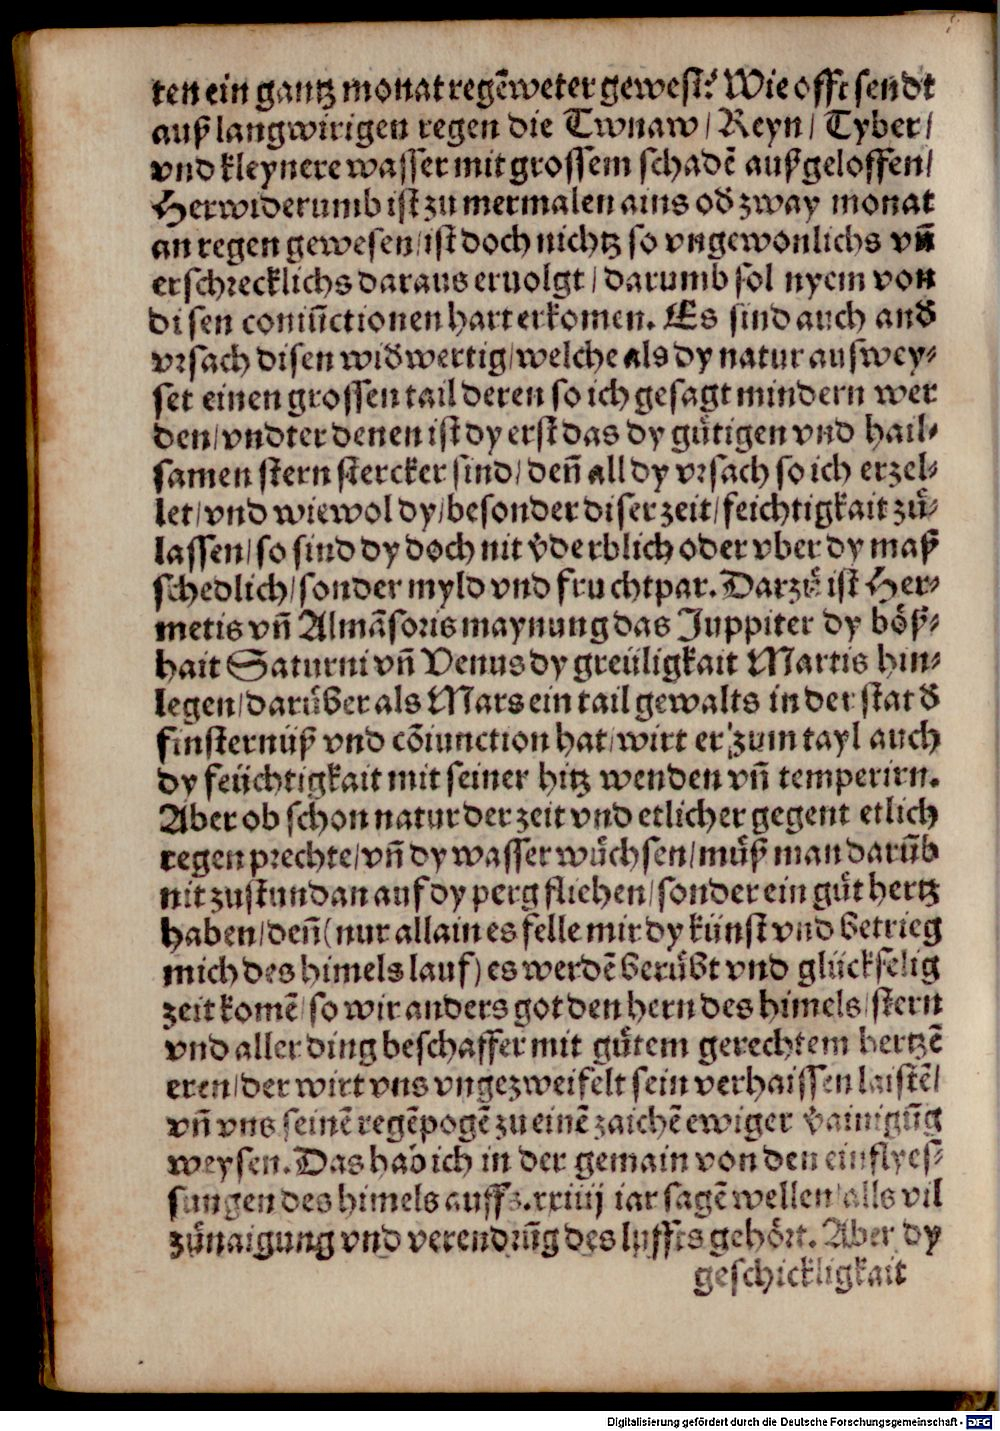 ten ein gantz monat regē̄weter gewest? Wie offt sendt
auß langwirigen regen die Twnaw/ Reyn/ Tyber/
vnd kleynere wasser mit grossem schadē außgeloffen/
Herwiderumb ist zu mermalen ains od̄ zway monat
an regen gewesen/ ist doch nichtz so vngewonlichs vñ
erschrecklichs daraus eruolgt/ darumb sol nyem von
disen coniūctionen hart erkomen. Es sind auch and̄
vrsach disen wid̄wertig/ welche als dy natur auswey⸗
set einen grossen tail deren so ich gesagt mindern wer
den/ vndter denen ist dy erst das dy gůtigen vnd hail⸗
samen stern stercker sind/ deñ all dy vrsach so ich erzel⸗
let/ vnd wiewol dy/ besonder diser zeit/ feichtigkait zů⸗
lassen/ so sind dy doch nit v̄derblich oder vber dy maß
schedlich/ sonder myld vnd fruchtpar. Darzů ist Her⸗
metis vñ Almāsoris maynung das Juppiter dy böß⸗
hait Saturni vñ Venus dy greüligkait Martis hin⸗
legen/ darüber als Mars ein tail gewalts in der stat d̄
finsternüß vnd cōiunction hat/ wirt er zum tayl auch
dy feüchtigkait mit seiner hitz wenden vñ temperirn.
Aber ob schon natur der zeit vnd etlicher gegent etlich
regen prechte/ vñ dy wasser wůchsen/ můß man darūb
nit zustundan auf dy perg fliehen/ sonder ein gůt hertz
haben/ deñ (nur allain es felle mir dy künst vnd betrieg
mich des himels lauf) es werdē berůbt vnd glückselig
zeit komē/ so wir anders got den hern des himels/ stern
vnd aller ding beschaffer mit gůtem gerechtem hertzē
eren/ der wirt vns vngezweifelt sein verhaissen laistē/
vñ vns seinē regēpogē zu einē zaichē ewiger v̄ainigūg
weysen. Das hab ich in der gemain von den einflyes⸗
sungen des himels auffs .xxiiij iar sagē wellen/ alls vil
zůnaigung vnd verendrūg des luffts gehört. Aber dy
geschickligkait
Digitalisierung gefördert durch die Deutsche Forschungsgemeinschaft - DFG